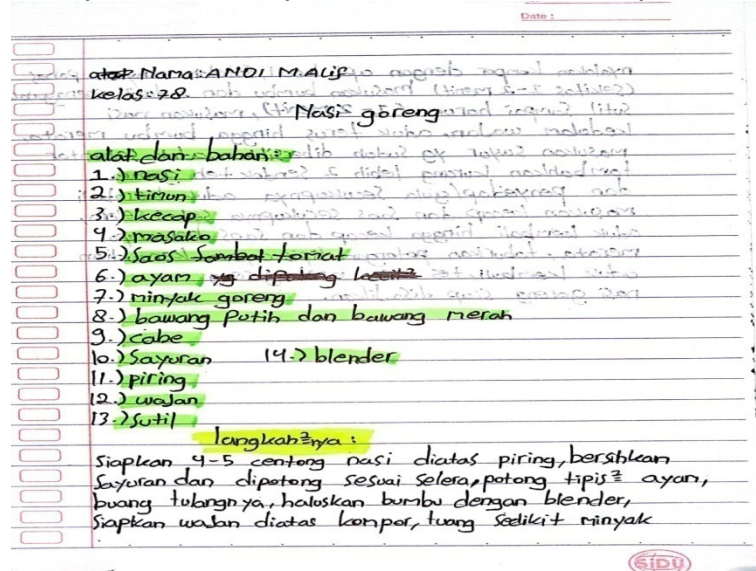 Date :
Nama : ANDI M.ALIF
Kelas : 7B.
Nasi goreng
alat dan bahan :
1.) nasi
2.) timun
3.) kecap
4.) masako
5.) Saos Sambal tomat
6.) ayam
7.) minyak goreng
8.) bawang Putih dan bawang merah
9.) cabe
10.) Sayuran 14.) blender
11.) piring
12.) wajan
13.) Sutil
langkah²nya :
Siapkan 4-5 centong nasi diatas piring, bersihkan
Sayuran dan dipotong sesuai selera, potong tipis² ayam,
buang tulangnya, haluskan bumbu dengan blender,
Siapkan wajan diatas kompor, tuang Sedikit minyak
SiDU